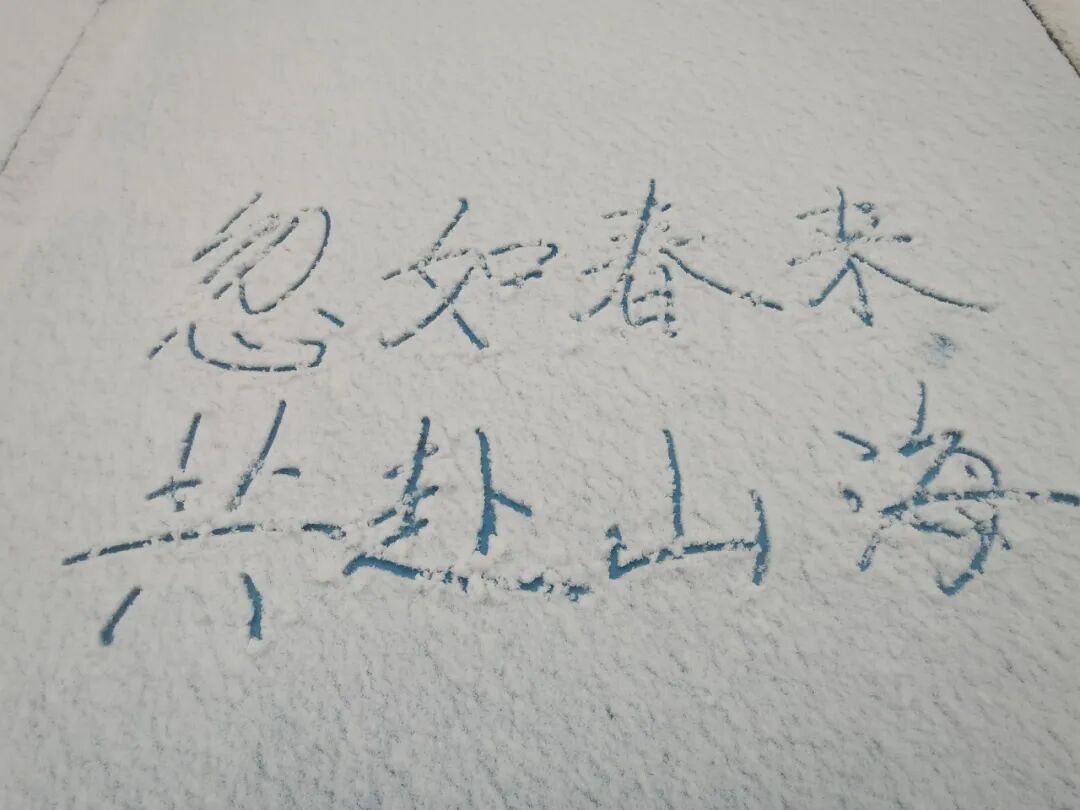 忽如春来
共赴山海